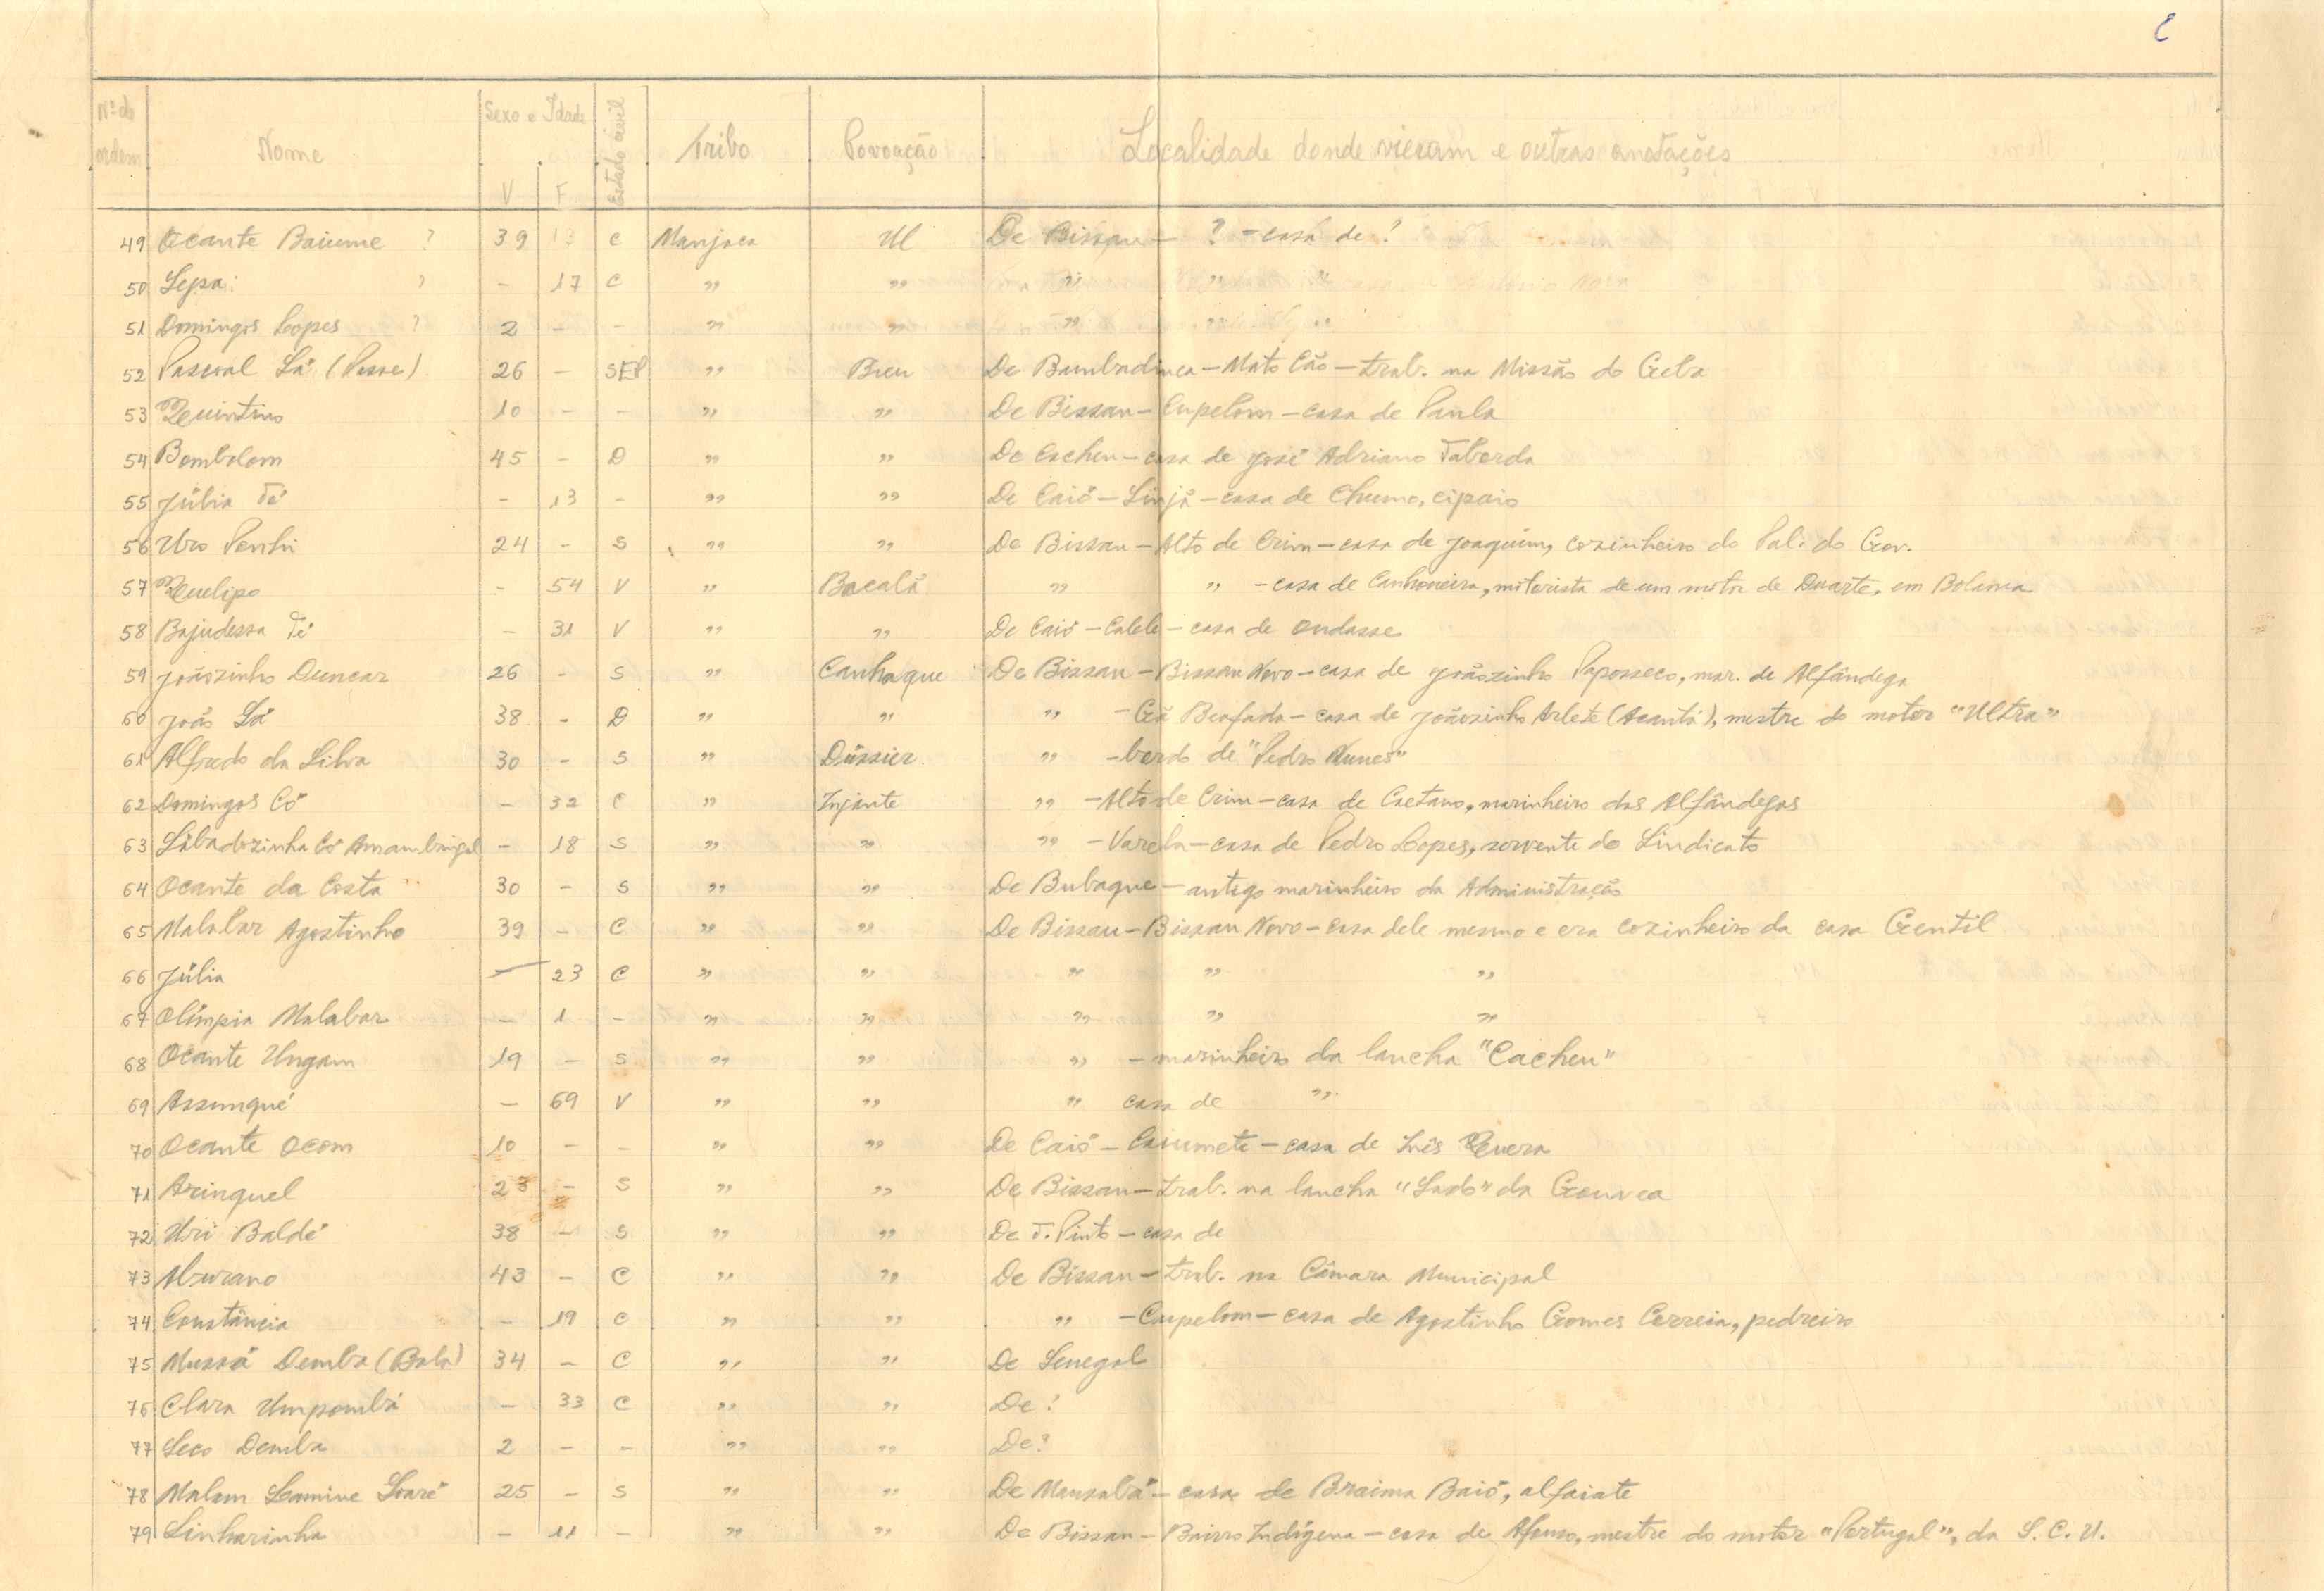 Nº de ordem Nome Sexo e Idade V F Estado civil Tribo Povoação Localidade donde vieram e outras anotações
49 Ocante Baiume ? 39 13 C Manjaca Ul De Bissau – ? – casa de ?
50 Sepa ? – 17 C " " " " "
51 Domingos Lopes ? 2 – – " " " " "
52 Pascoal Sá (Passe) 26 – SEP " Bieu De Bambadinca – Mato Cão – trab. na Missão do Geba
53 Quintino 10 – – " " De Bissau – Cupelom – casa de Paula
54 Bombolom 45 – D " " De Cacheu – casa de José Adriano Taborda
55 Júlia Té – 13 – " " De Caió – Sinjá – casa de Chumo, cipaio
56 Uro Penhi 24 – S " " De Bissau – Alto de Crim – casa de Joaquim, cozinheiro do Pal. do Gov.
57 Quelipo – 54 V " Bacalá " " – casa de Canhoneira, motorista de um motor de Duarte, em Bolama
58 Bajudessa Té – 31 V " " De Caió – Calele – casa de Ondasse
59 Joãozinho Duncar 26 – S " Canhaque De Bissau – Bissau Novo – casa de Joãozinho Paposseco, mar. de Alfândega
60 João Sá 38 – D " " " – Gã Beafada – casa de Joãozinho Arlete (Acantó), mestre do motor "Ultra"
61 Alfredo da Silva 30 – S " Dússier " – bordo de "Pedro Nunes"
62 Domingos Có – 32 C " Injante " – Alto de Crim – casa de Caetano, marinheiro das Alfândegas
63 Sábadozinha Có – 18 S " " " – Varela – casa de Pedro Lopes, servente do Sindicato
64 Ocante da Costa 30 – S " " De Bubaque – antigo marinheiro da Administração
65 Malabar Agostinho 39 – C " " De Bissau – Bissau Novo – casa dele mesmo e era cozinheiro da casa Gentil
66 Júlia – 23 C " " " " "
67 Olímpia Malabar – 1 – " " " " "
68 Ocante Ungam 19 – S " " " – marinheiro da lancha "Cacheu"
69 Assunqué – 69 V " " " casa de "
70 Ocante Ocom 10 – – " " De Caió – Caiumete – casa de Inês Quera
71 Arinquel 23 – S " " De Bissau – trab. na lancha "Sado" da Gouvea
72 Uri Baldé 38 – S " " De T. Pinto – casa de
73 43 – C " " De Bissau – trab. na Câmara Municipal
74 Constância – 19 C " " " – Cupelom – casa de Agostinho Gomes Correia, pedreiro
75 Mussá Demba (Bala) 34 – C " " De Senegal
76 Clara Umpombá – 33 C " " De ?
77 Seco Demba 2 – – " " De ?
78 Malam Lamine Soaré 25 – S " " De Mansabá – casa de Braima Baió, alfaiate
79 Sinharinha – 11 – " " De Bissau – Bairro Indígena – casa de Afonso, mestre do motor "Portugal", da S. C. U.